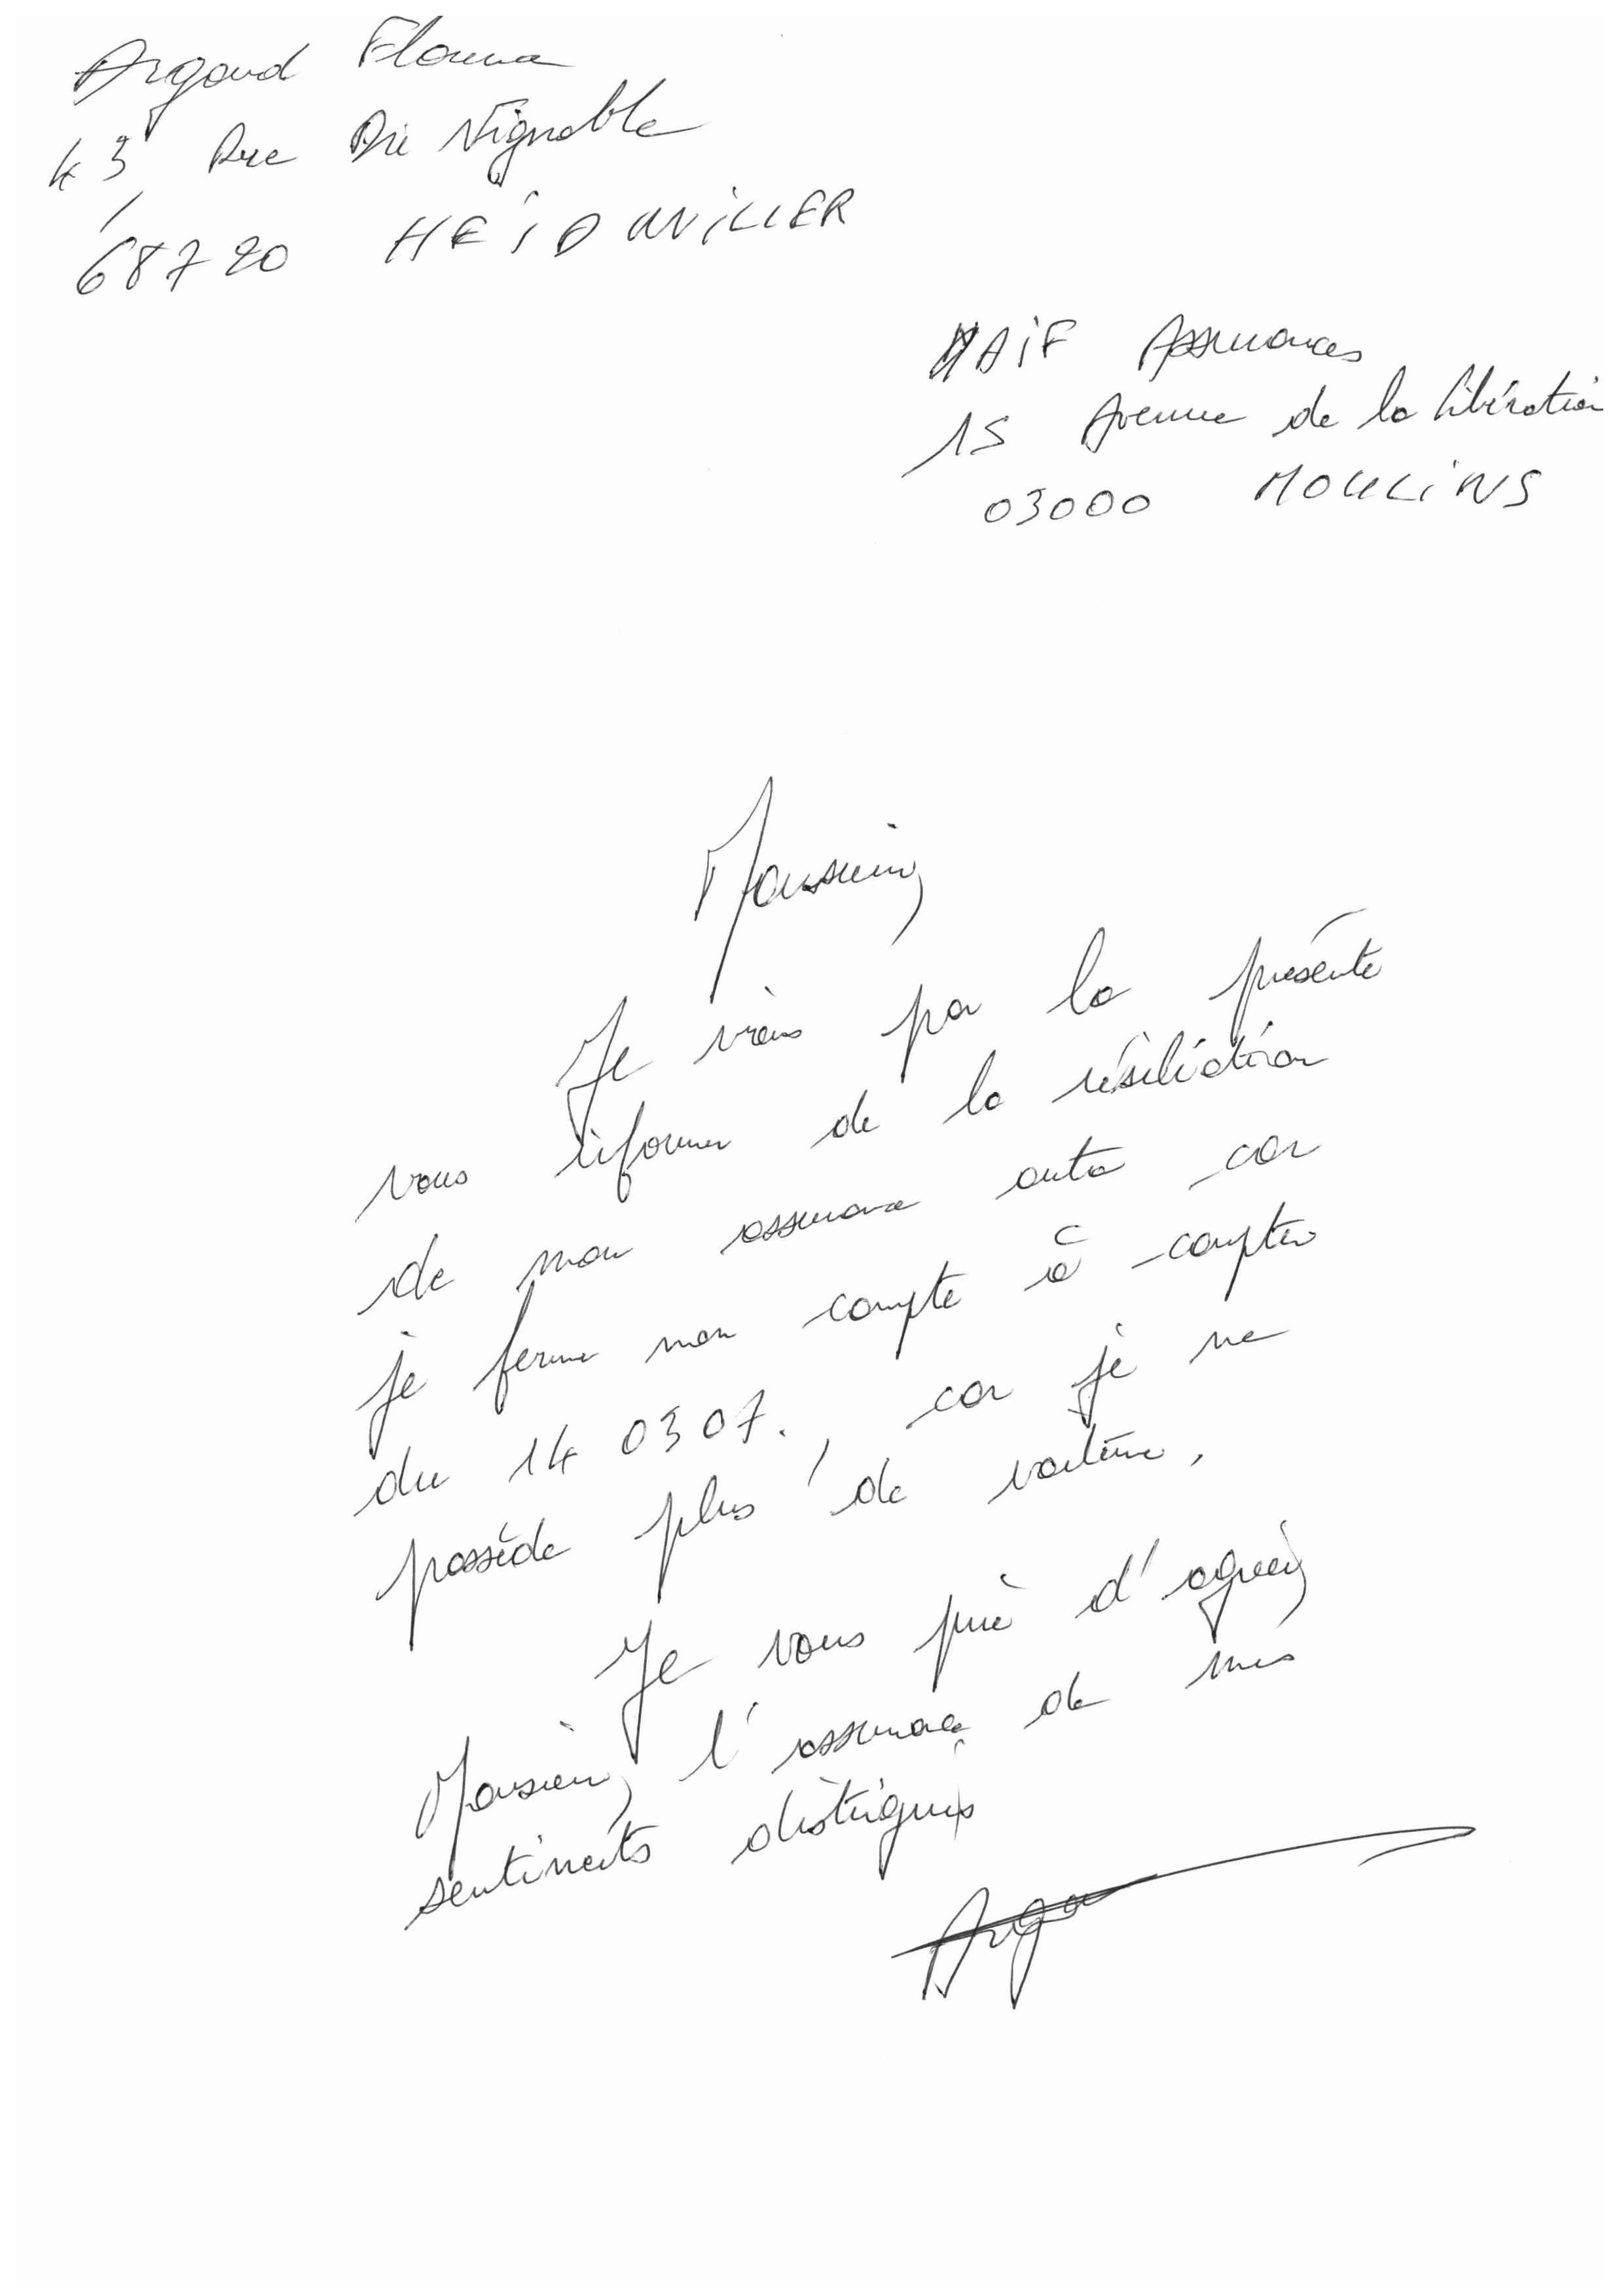 Argaud
43, Rue Du Vignoble
68720 HEIDWILLER
MAIF Assurances
15 Avenue de la libération
03000 MOULINS
Monsieur,
Je viens par la présente
vous informer de la résiliation
de mon assurance auto car
je ferme mon compte à compter
du 14 03 07., car je ne
possède plus de voiture.
Je vous prie d'agréer,
Monsieur, l'assurance de mes
sentiments distingués